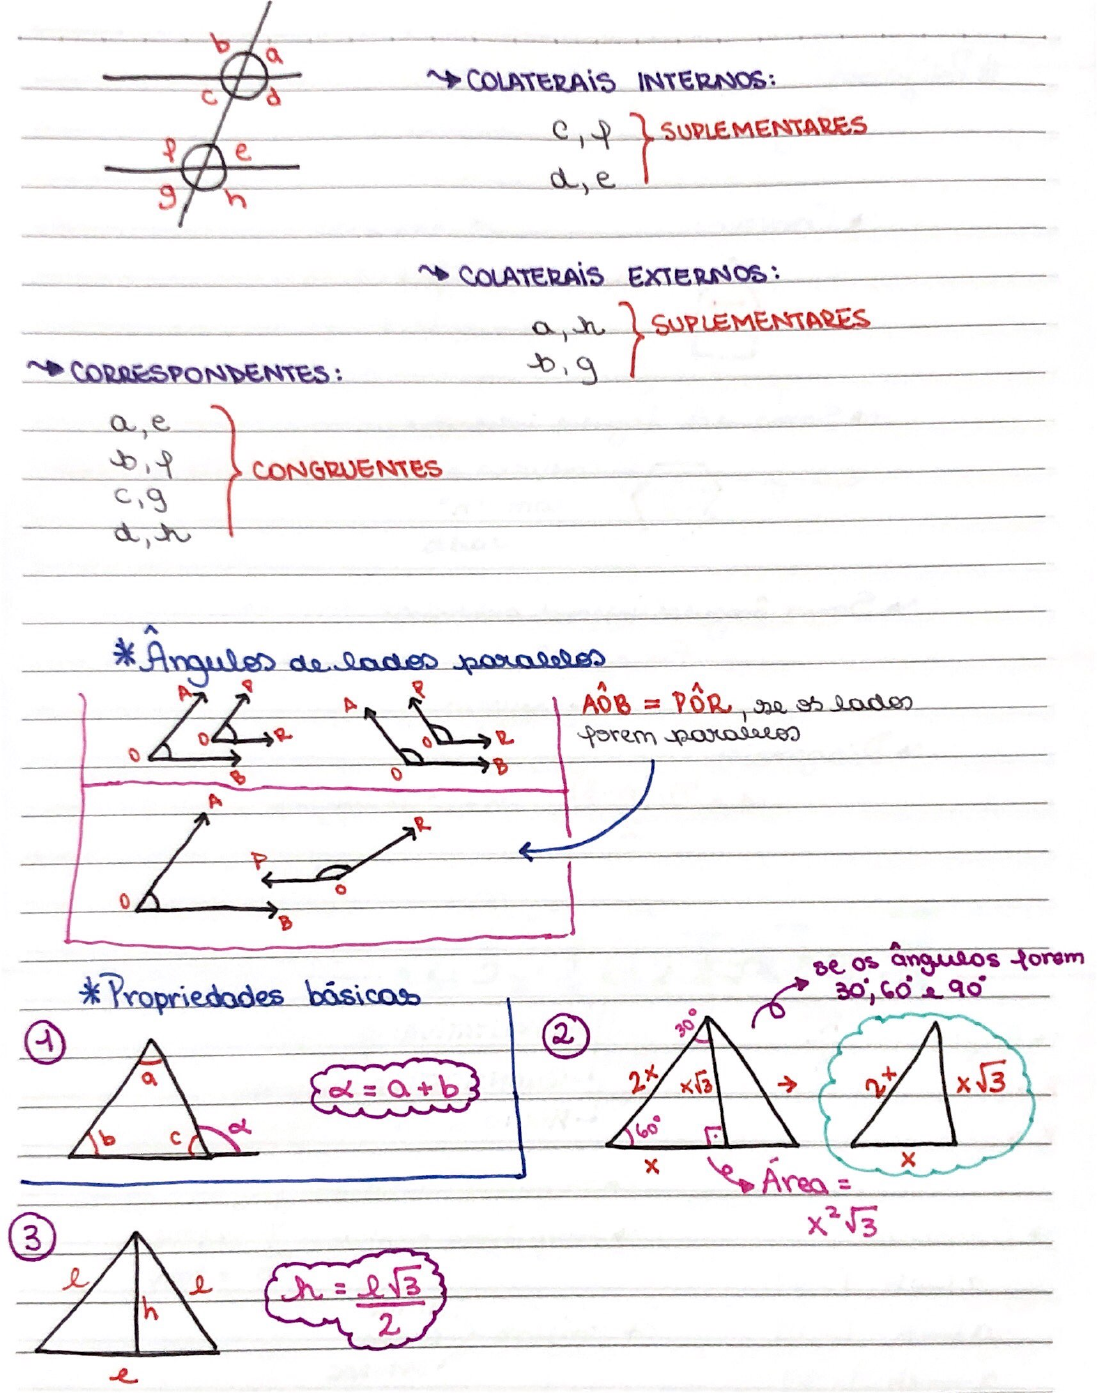 b
a
c
d
f
e
g
h
COLATERAIS INTERNOS:
c, f
d, e
SUPLEMENTARES
COLATERAIS EXTERNOS:
a, h
b, g
SUPLEMENTARES
CORRESPONDENTES:
a, e
b, f
c, g
d, h
CONGRUENTES
* Ângulos de lados paralelos
A
O
B
P
O
R
A
O
B
P
O
R
AÔB = PÔR, se os lados
forem paralelos
A
O
B
P
O
R
* Propriedades básicas
1
a
b
c
α
α = a + b
2
se os ângulos forem
30°, 60° e 90°
30°
2x
x√3
60°
x
→
Área =
x²√3
2x
x√3
x
3
l
l
h
l
h = l√3
2